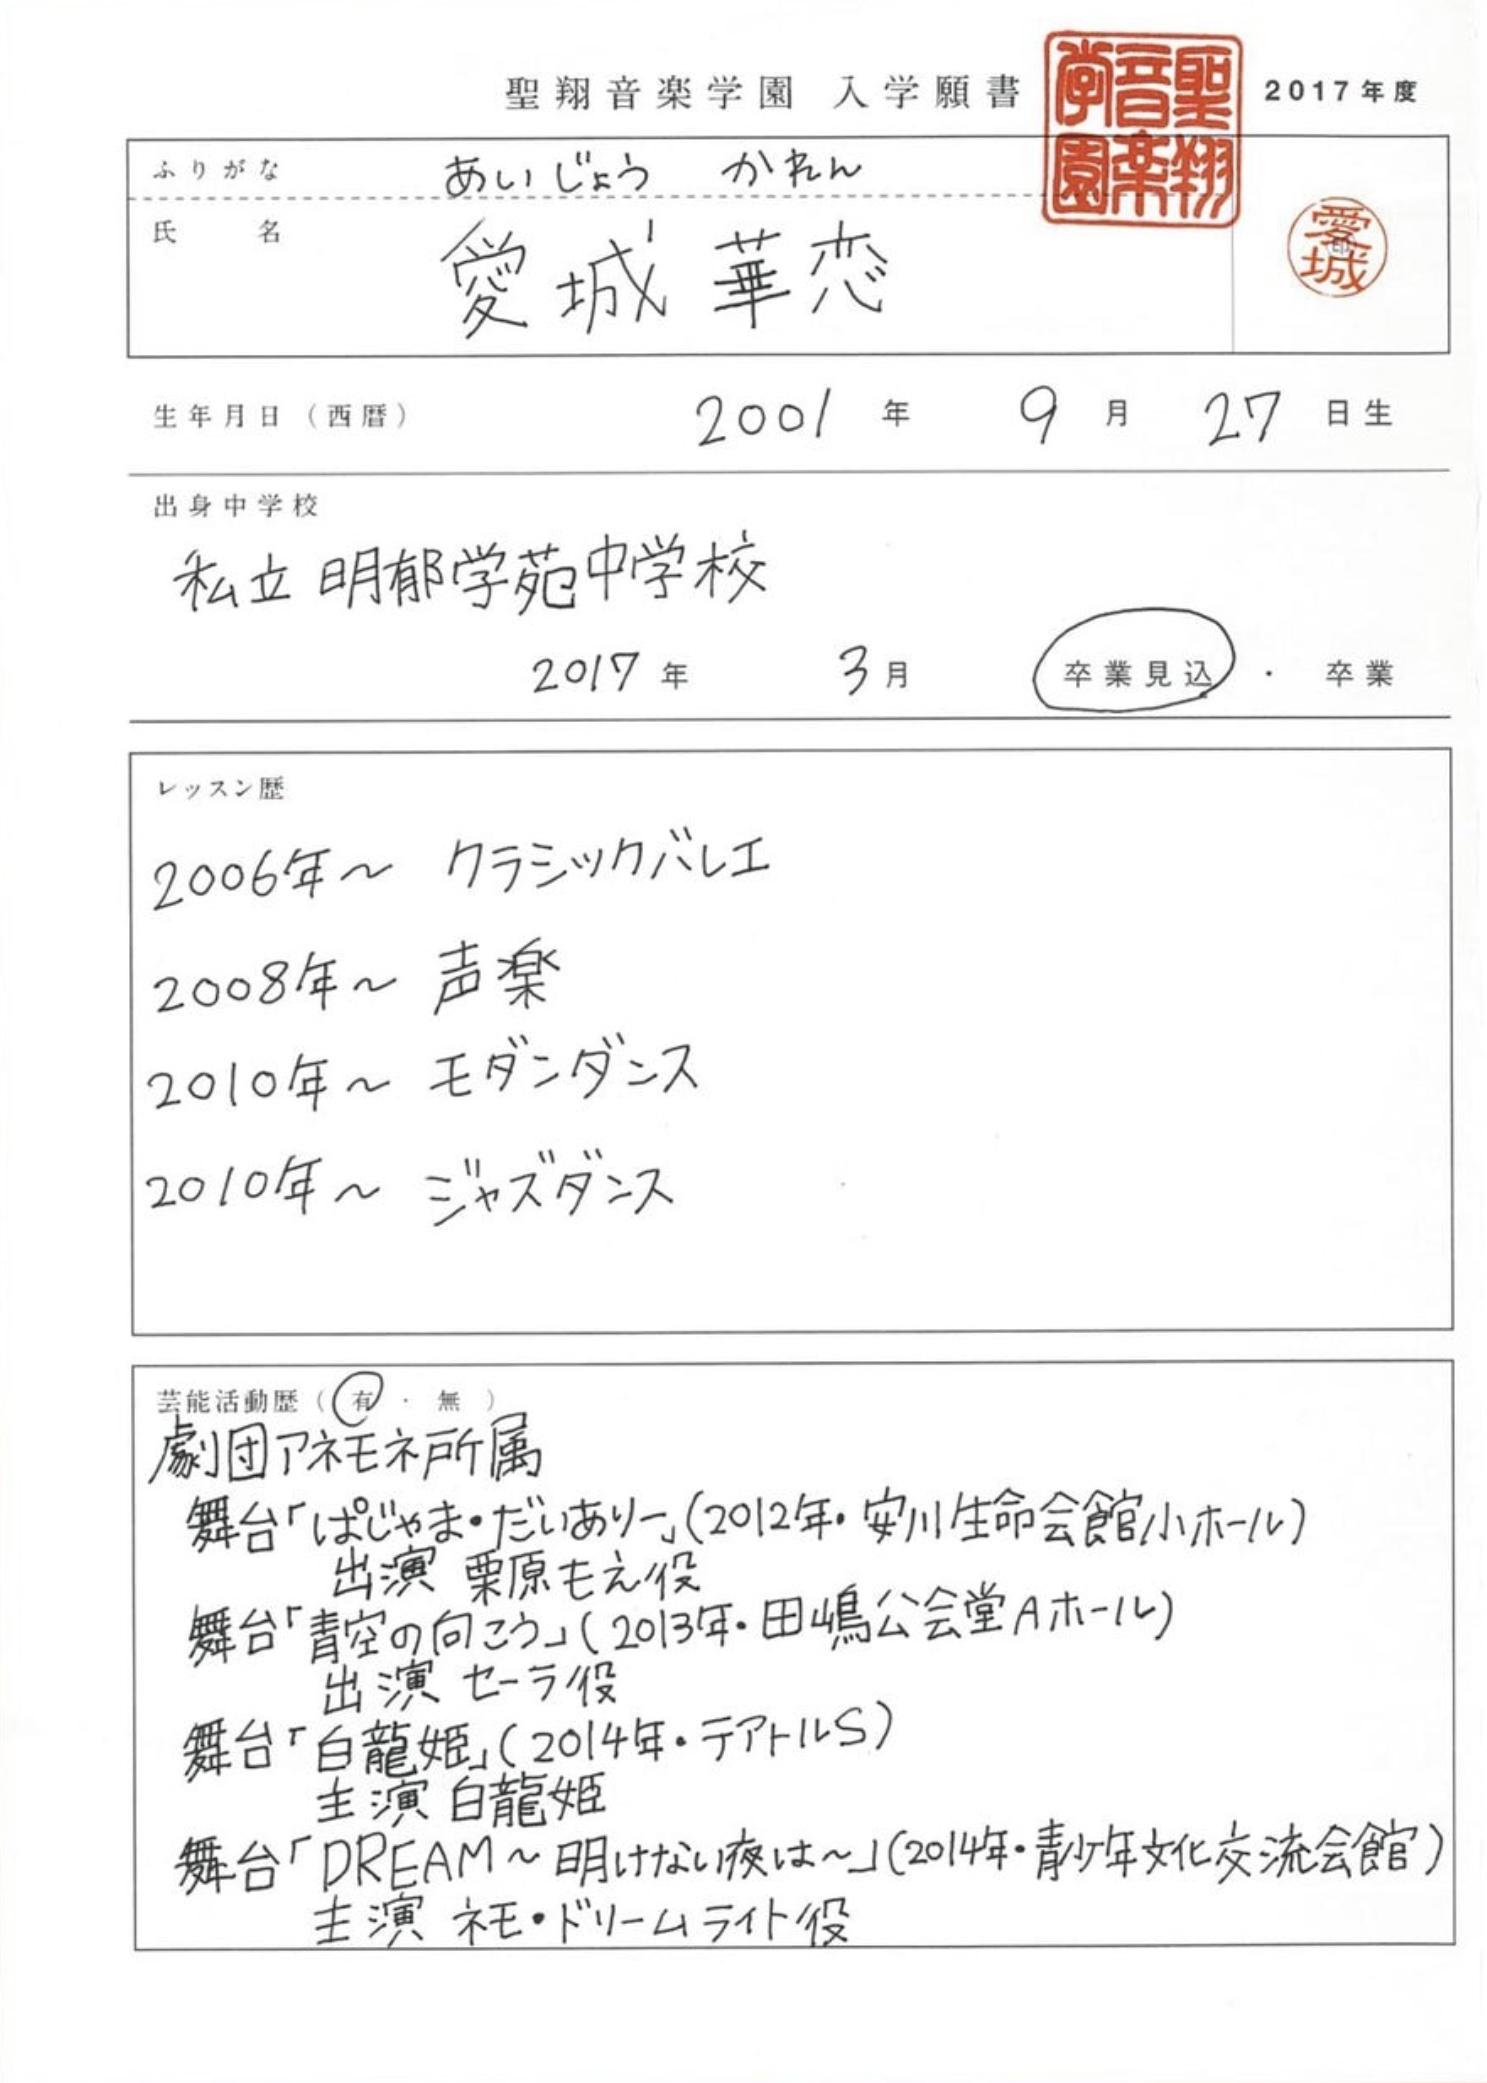 聖翔音楽学園 入学願書
聖翔音楽学園
2017年度
ふりがな あいじょう かれん
氏名 愛城 華恋
愛城
印
生年月日(西暦) 2001年 9月 27日生
出身中学校
私立 明郁学苑中学校
2017年 3月 卒業見込・卒業
レッスン歴
2006年~ クラシックバレエ
2008年~ 声楽
2010年~ モダンダンス
2010年~ ジャズダンス
芸能活動歴(有・無)
劇団アネモネ所属
舞台「ぱじゃま・だいありー」(2012年・安川生命会館小ホール)
出演 栗原もえ役
舞台「青空の向こう」(2013年・田嶋公会堂Aホール)
出演 セーラ役
舞台「白龍姫」(2014年・テアトルS)
主演 白龍姫
舞台「DREAM~明けない夜は~」(2014年・青少年文化交流会館)
主演 ネモ・ドリームライト役